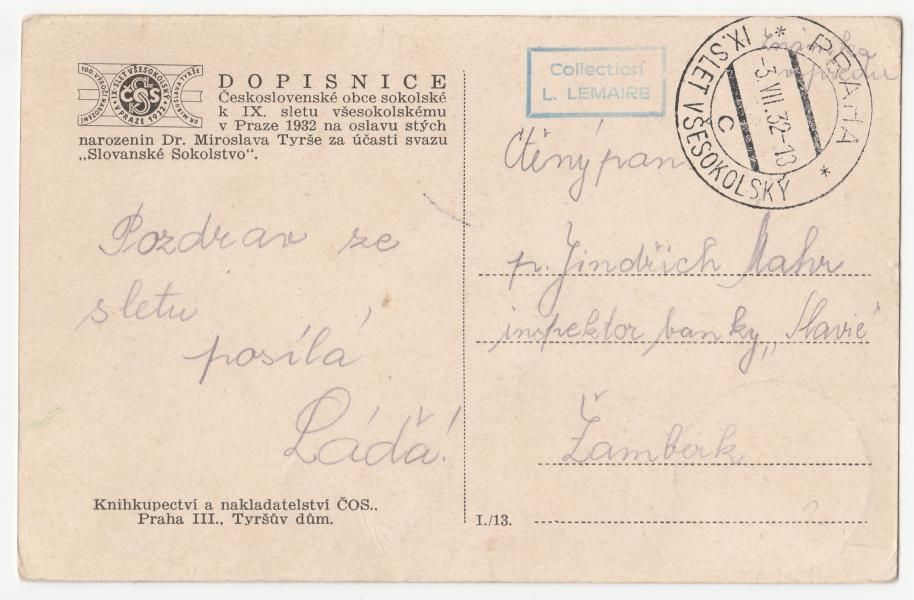 100. VÝROČÍ NAROZENÍ
IX. SLET VŠESOKOLSKÝ
V PRAZE 1932
ČOS
DR. MIROSLAVA TYRŠE
DOPISNICE
Československé obce sokolské
k IX. sletu všesokolskému
v Praze 1932 na oslavu stých
narozenin Dr. Miroslava Tyrše za účasti svazu
„Slovanské Sokolstvo“.
Pozdrav ze
sletu
posílá
Láďa!
Knihkupectví a nakladatelství ČOS..
Praha III., Tyršův dům.
Collection
L. LEMAIRE
* PRAHA *
-3.VII.32-13
C
IX. SLET VŠESOKOLSKÝ
Známka
Ctěný pan
p. Jindřich Mahr
inspektor banky „Slavie“
Žamberk
I./13.